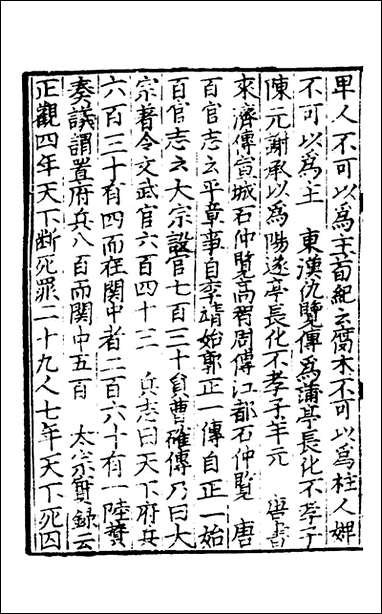 卑人不可以為主荀紀云腐木不可以為柱人婢
不可以為主　東漢仇覽傳為蒲亭長化不孝子
陳元謝承以為陽遂亭長化不孝子羊元　唐書
來濟傳宣城石仲覽高智周傳江都石仲覽　唐
百官志云平章事自李靖始郭正一傳自正一始
百官志云大宗設官七百三十員曹確傳乃曰大
宗著令文武官六百四十三　兵志曰天下府兵
六百三十有四而在関中者二百六十有一陸贄
奏議謂置府兵八百而関中五百　太宗實録云
正觀四年天下斷死罪二十九人七年天下死囚